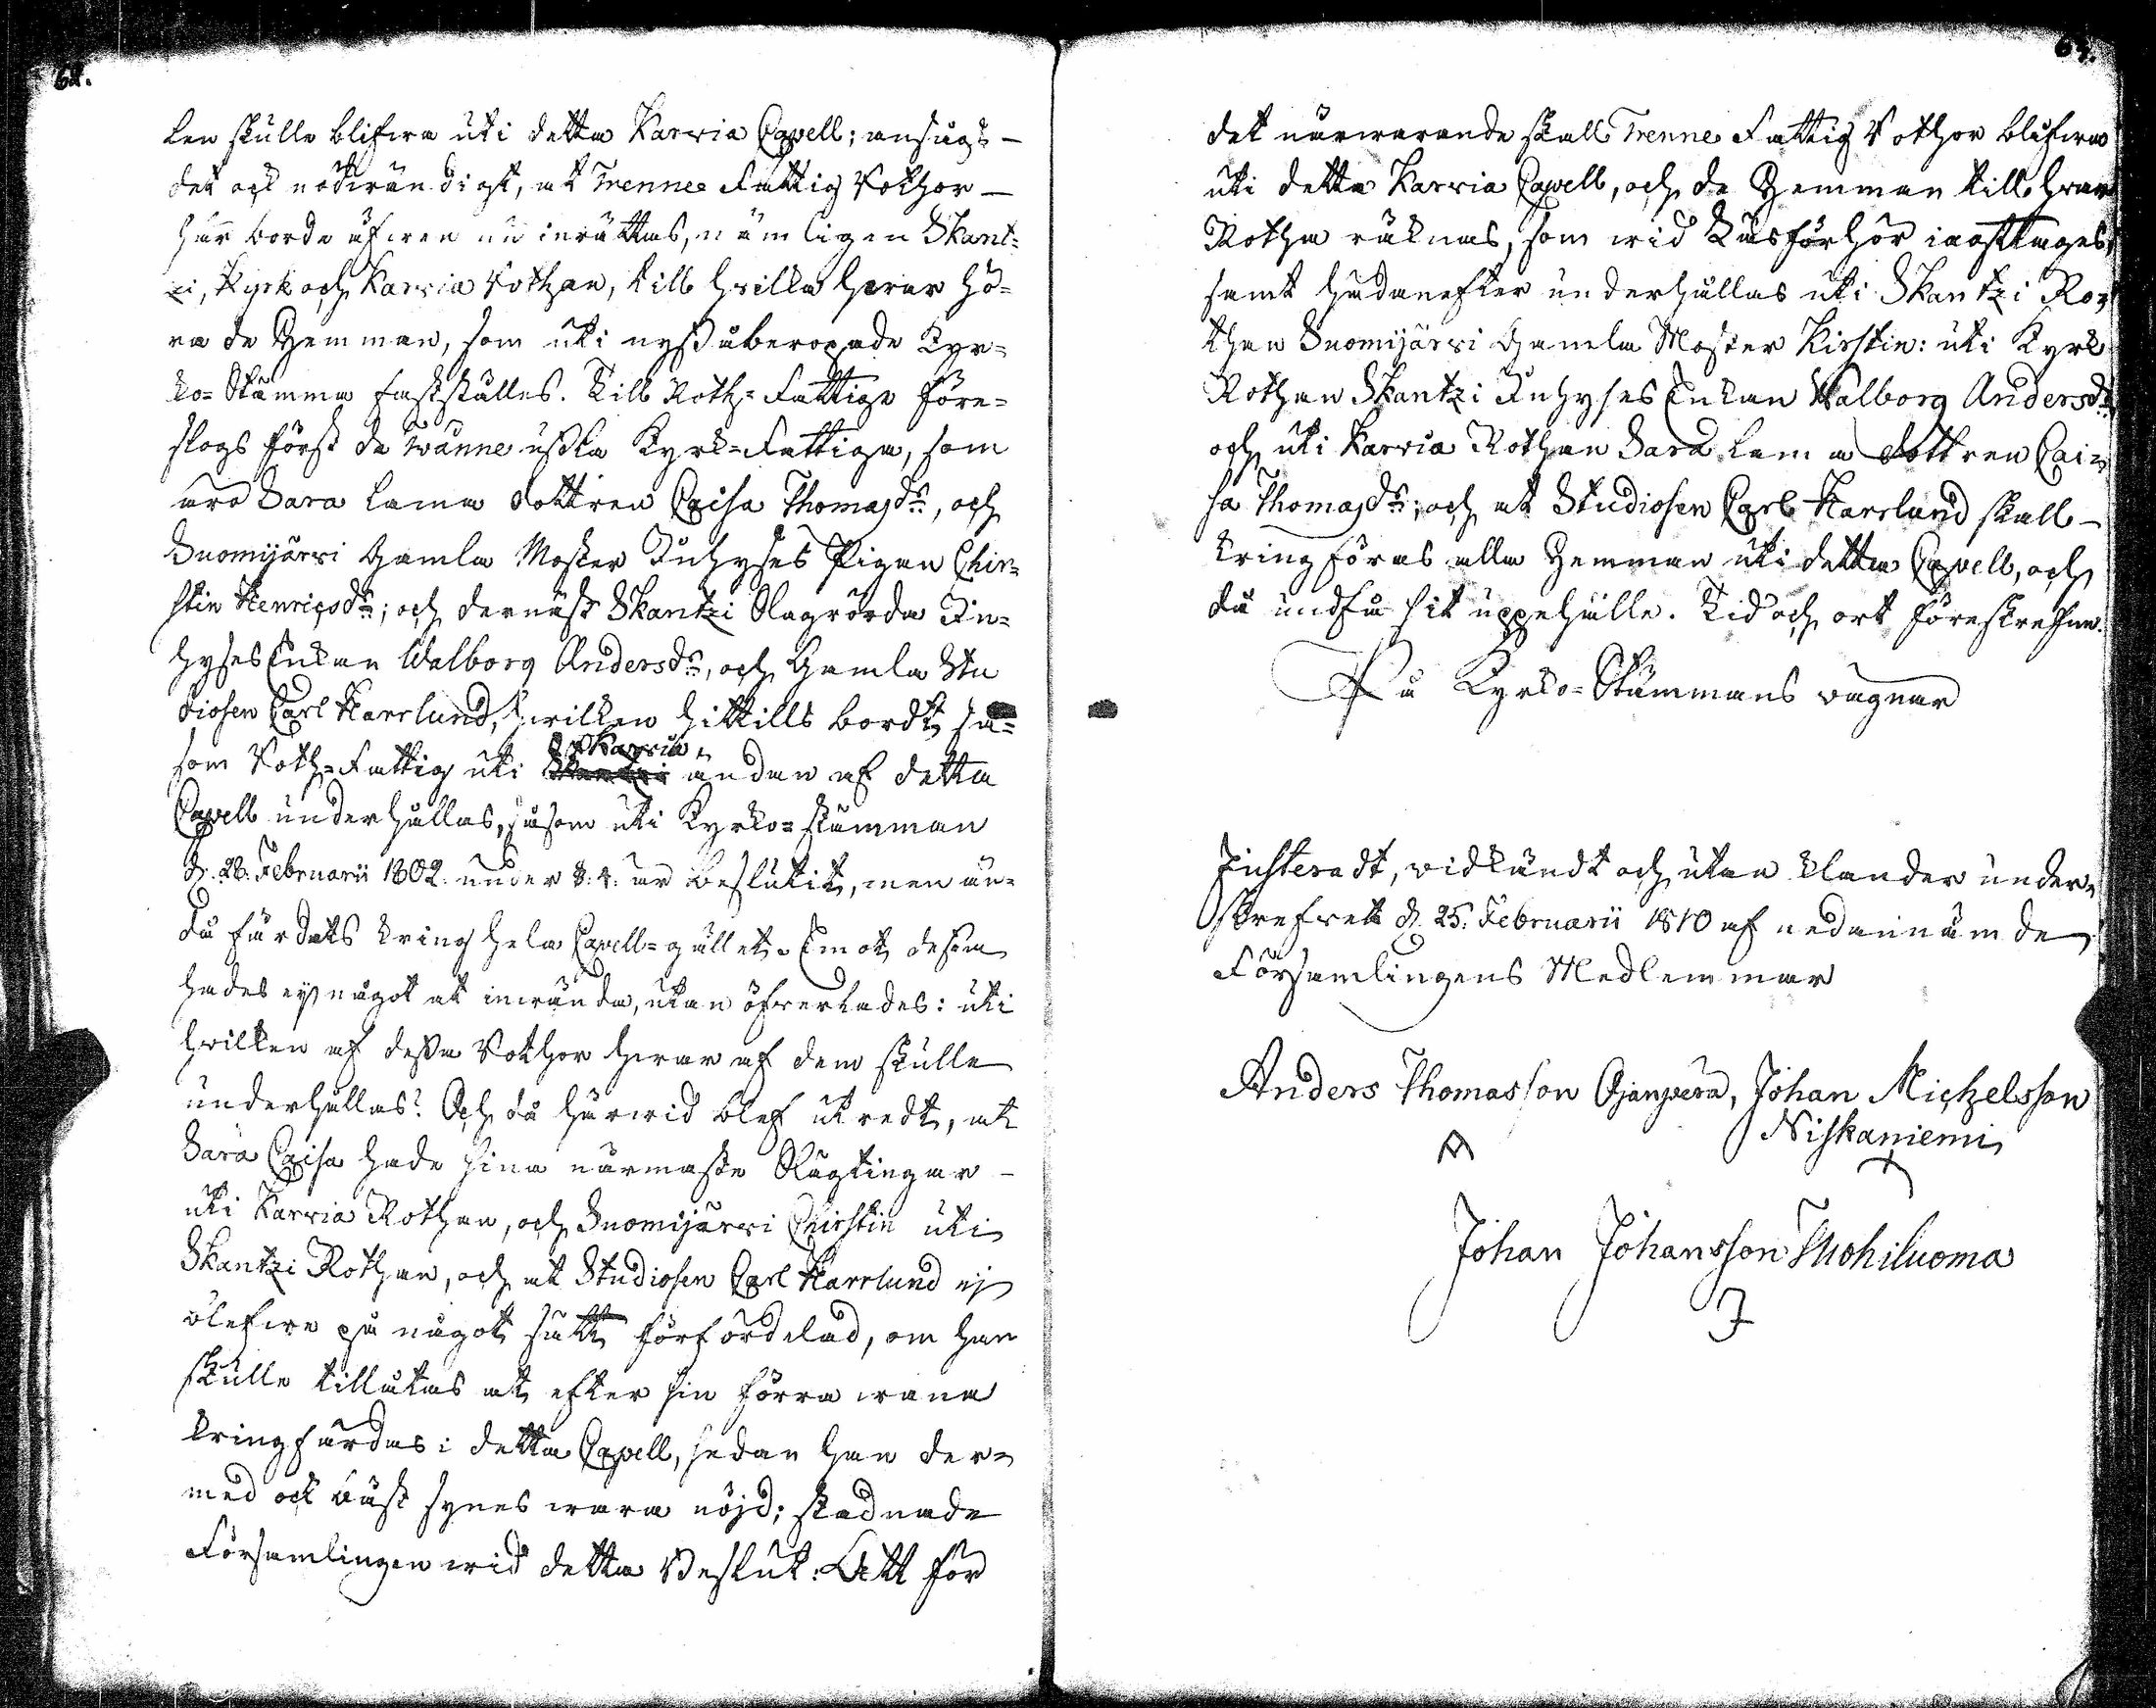 62.
len skulle blifwa uti detta Karvia Capell; ansågs —
det ock nödwändigt, at Trenne Fattig Rothor —
här borde äfwen nu inrättas, nämligen Skant-
zi, Kyrk och Karvia Rothan, till hvilka hwar hö-
ra de Hemman, som uti nyss åberopade Kyr-
ko-Stämma fastställes. Till Roth-Fattige före-
slogs först de twänne usla Kyrk-Fattiga, som
äro Sara Lama dottren Caisa Thomasdr, och
Suomijärvi Gamla Moster Inhyses Pigan Chir-
stin Henricsdr; och dernäst Skantzi Slagrörda In-
hyses Enkan Walborg Andersdr, och Gamla Stu
diosen Carl Harrlund, hwilken hittills bordt så-
som Roth-Fattig uti Karvia ändan af detta
Capell underhållas, såsom uti Kyrko-stämman
d. 28. Februarii 1802. under §: 4: är beslutit, men än-
då färdats kring hela Capell-gället. Emot dessa
hades ej något at inwända, utan öfwerlades: uti
hvilken af dessa Rothor hwar af dem skulle
underhållas? Och då härwid blef utredt, at
Sara Caisa hade sina närmaste Slägtingar —
uti Karvia Rothan, och Suomijärvi Chirstin uti
Skantzi Rothan, och at Studiosen Carl Harrlund ej
blefwe på något sätt förfördelad, om han
skulle tillåtas at efter sin förra wana
kringfärdas i detta Capell, sedan han der-
med ock bäst synes wara nöjd; stadnade
Församlingen wid detta Beslut: Att för
det närwarande skall Trenne Fattig Rothor blifwa
uti detta Karvia Capell, och de Hemman till hwar
Rotha räknas, som wid Läsförhör iagttages,
samt hädanefter underhållas uti Skantzi Ro-
than Suomijärvi Gamla Moster Kirstin: uti Kyrk
Rothan Skantzi Inhyses Enkan Walborg Andersdr
och uti Karvia Rothan Sara Lama dottren Cai-
sa Thomasdr; och at Studiosen Carl Harrlund skall —
kringföras alla Hemman uti detta Capell, och
då undfå sit uppehälle. Tid och ort föreskrefne.
På Kyrko-Stämmans vägnar
Justeradt, vidkändt och utan klander under-
skrefwett d. 25. Februarii 1810 af nedannämde
Församlingens Medlemmar
Anders Thomasson Ojanperä, Johan Michelsson
Niskaniemi
Johan Johansson Muohiluoma